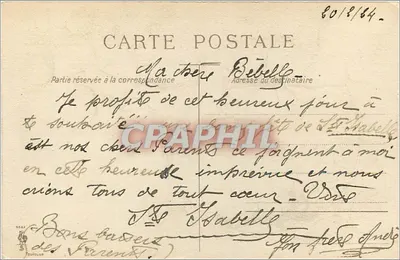 20/2/24-
CARTE POSTALE
Partie réservée à la correspondance
Adresse du destinataire
Ma chère Bébelle-
Je profite de cet heureux jour à
te souhaitéé fête de Ste Isabelle
CPAPHIL
est nos chers Parents ce joignent à moi
en cette heureuse imprévue et nous
crions tous de tout cœur - Vive
Ste Isabelle
Ton frère André
(Bons baisers
des Parents)